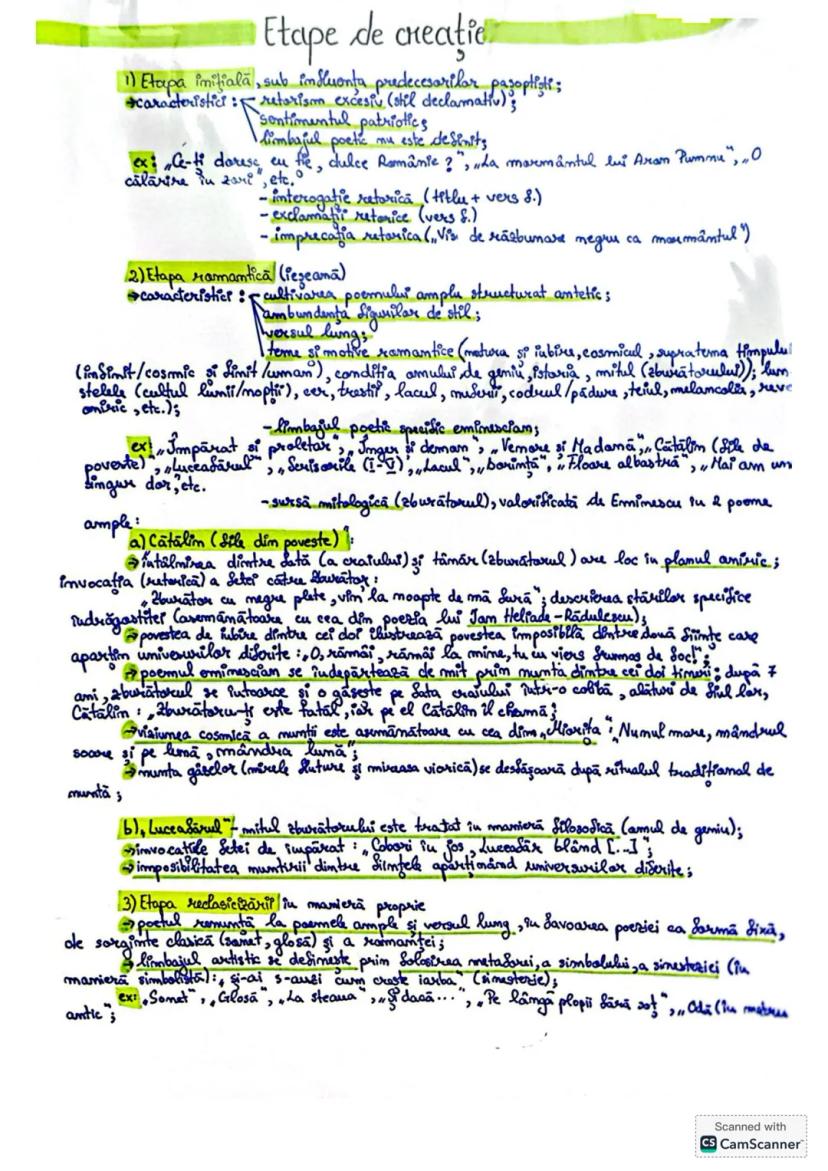 Etape de creație
1) Etapa inițială, sub influența predecesorilor pașoptiști;
→caracteristici: retorism excesiv (stil declamativ);
sentimentul patriotic;
limbajul poetic nu este definit;
ex: „Ce-ți doresc eu ție, dulce Românie?", „La mormântul lui Aron Pumnu", „O
călărire în zori", etc.
- interogație retorică (titlu + vers f.)
- exclamații retorice (vers f.)
- imprecația retorica („Vis de răzbunare negru ca mormântul")
2) Etapa romantică (ieșeană)
→caracteristici: cultivarea poemului amplu structurat antetic;
ambundența figurilor de stil;
versul lung;
teme și motive romantice (natura și iubire, cosmicul, supratema timpului
(infinit/cosmic și finit/uman), condiția omului de geniu, istoria, mitul (zburătorului)); lun
stelele (cultul lunii/nopții), cer, trestii, lacul, nuferii, codrul/pădure, teiul, melancolia, reve
oniric, etc.);
-limbajul poetic specific eminescian;
ex: „Împărat și proletar", „Înger și demon", „Venere și Madonă", „Călin (file de
poveste)", „Luceafărul", „Scrisorile (I-V)", „Lacul", „Dorința", „Floare albastră", „Mai am un
singur dor", etc.
-sursă mitologică (zburătorul), valorificată de Eminescu în 2 poeme
ample:
a) Călin (file din poveste)":
→întâlnirea dintre fată (a craiului) și tânăr (zburătorul) are loc în planul oniric;
invocația (retorică) a fetei către zburător:
„Zburător cu negre plete, vin' la noapte de mă fură"; descrierea stărilor specifice
îndrăgostitei (asemănătoare cu cea din poezia lui Ion Heliade-Rădulescu);
→povestea de iubire dintre cei doi ilustrează povestea imposibilă dintre două ființe care
aparțin universurilor diferite: „O, rămâi, rămâi la mine, tu cu viers frumos de foc!";
→poemul eminescian se îndepărtează de mit prin nunta dintre cei doi tineri; după 7
ani, zburătorul se întoarce și o găsește pe fata craiului într-o colibă, alături de fiul lor,
Călin: „Zburătoru-ți este tatăl, iar pe el Călin îl cheamă;
→viziunea cosmică a nunții este asemănătoare cu cea din „Miorița": „Nunul mare, mândrul
soare și pe lună, mândra lună";
→nunta gâzelor (mirele fluture și mireasa viorică) se desfășoară după ritualul tradițional de
nuntă;
b) „Luceafărul" - mitul zburătorului este tratat în manieră filosofică (omul de geniu);
→invocațiile fetei de împărat: „Cobori în jos, Luceafăr blând [...]";
→imposibilitatea nuntirii dintre ființele aparținând universurilor diferite;
3) Etapa reclasicizării în manieră proprie
→poetul renunță la poemele ample și versul lung, în favoarea poeziei ca formă fixă,
de sorginte clasică (sonet, glosă) și a romanței;
→limbajul artistic se definește prin folosirea metaforei, a simbolului, a sinesteziei (în
manieră simbolistă): „și-ai s-auzi cum crește iarba" (sinestezie);
ex: „Sonet", „Glosă", „La steaua", „Și dacă...", „Pe lângă plopii fără soț", „Odă (în metru
antic";
Scanned with
CS CamScanner